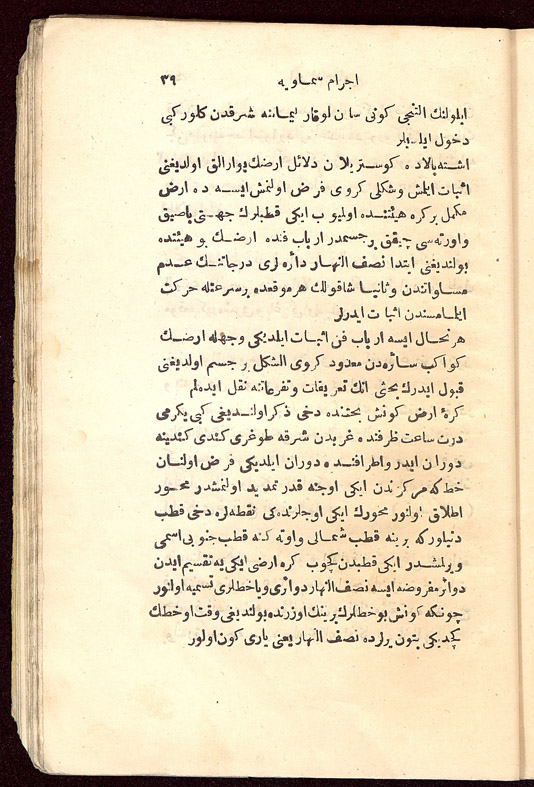 اجرام سماويه ٣٩
ايلولنك التنجى كونى سان لوقار ليماننه شرقدن كلور كبى
دخول ايلديلر
اشته بالاده كوستريلان دلائل ارضك يوارالق اولديغنى
اثبات ايلمش وشكلى كروى فرض اولنمش ايسه ده ارض
مكمل بر كره هيئتنده اولميوب ايكى قطبلرك جهتى باصيق
واورته سى چيقق بر جسمدر ارباب فنده ارضك بو هيئتده
بولنديغنى ابتدا نصف النهار دائره لرى درجاتنك عدم
مساواتندن وثانيا شاقولك هر موقعده بر سرعتله حركت
ايلمامسندن اثبات ايدرلر
هر نحال ايسه ارباب فن اثبات ايلديكى وجهله ارضك
كواكب سائره دن معدود كروى الشكل بر جسم اولديغنى
قبول ايدرك بحثى انك تعريفات وتفرعاتنه نقل ايده لم
كرهٔ ارض كونش بحثنده دخى ذكر اولنديغى كبى يكرمى
درت ساعت ظرفنده غربدن شرقه طوغرى كندى كندينه
دوران ايدر واطرافنده دوران ايلديكى فرض اولنان
خط كه مركزندن ايكى اوجنه قدر تمديد اولنمشدر محور
اطلاق اولنور محورك ايكى اوجلرنده كى نقطه لره دخى قطب
دنيلور كه برينه قطب شمالى واوته كنه قطب جنوبى اسمى
ويرلمشدر ايكى قطبدن كچوب كره ارضى ايكى يه تقسيم ايدن
دوائر مفروضه ايسه نصف النهار دوائرى ويا خطلرى تسميه اولنور
چونكه كونش بو خطلرك برينك اوزرنده بولنديغى وقت او خطك
كچديكى بتون يرلرده نصف النهار يعنى يارى كون اولور